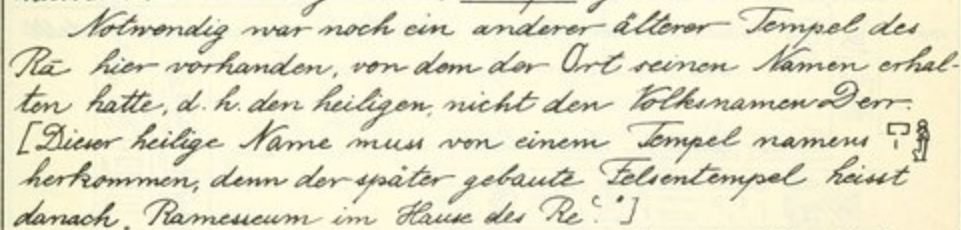 Notwendig war noch ein anderer älterer Tempel des
Rā hier vorhanden, von dem der Ort seinen Namen erhal-
ten hatte, d. h. den heiligen, nicht den Volksnamen Derr.
[Dieser heilige Name muss von einem Tempel namens 𓉐𓏤𓁛
herkommen, denn der später gebaute Felsentempel heisst
danach „Ramesseum im Hause des Reꜥ.“]